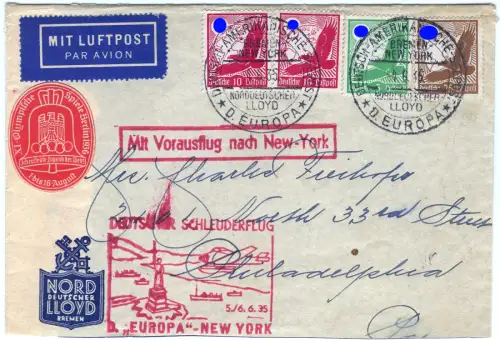 MIT LUFTPOST
PAR AVION
10 Deutsche Luftpost 10
DEUTSCH-AMERIKANISCHE
BREMEN-
NEW YORK
NORDDEUTSCHER
LLOYD
* D. EUROPA *
DEUTSCH-AMERIKANISCHE
BREMEN-
NEW YORK
NORDDEUTSCHER
LLOYD
* D. EUROPA *
XI. Olympische Spiele Berlin 1936
1 bis 16 August
Mit Vorausflug nach New-York
Mrs. Charles
North 33rd Street
Philadelphia
Pa
DEUTSCHER SCHLEUDERFLUG
5./6. 6. 35
D. „EUROPA"-NEW YORK
NORD
DEUTSCHER
LLOYD
BREMEN